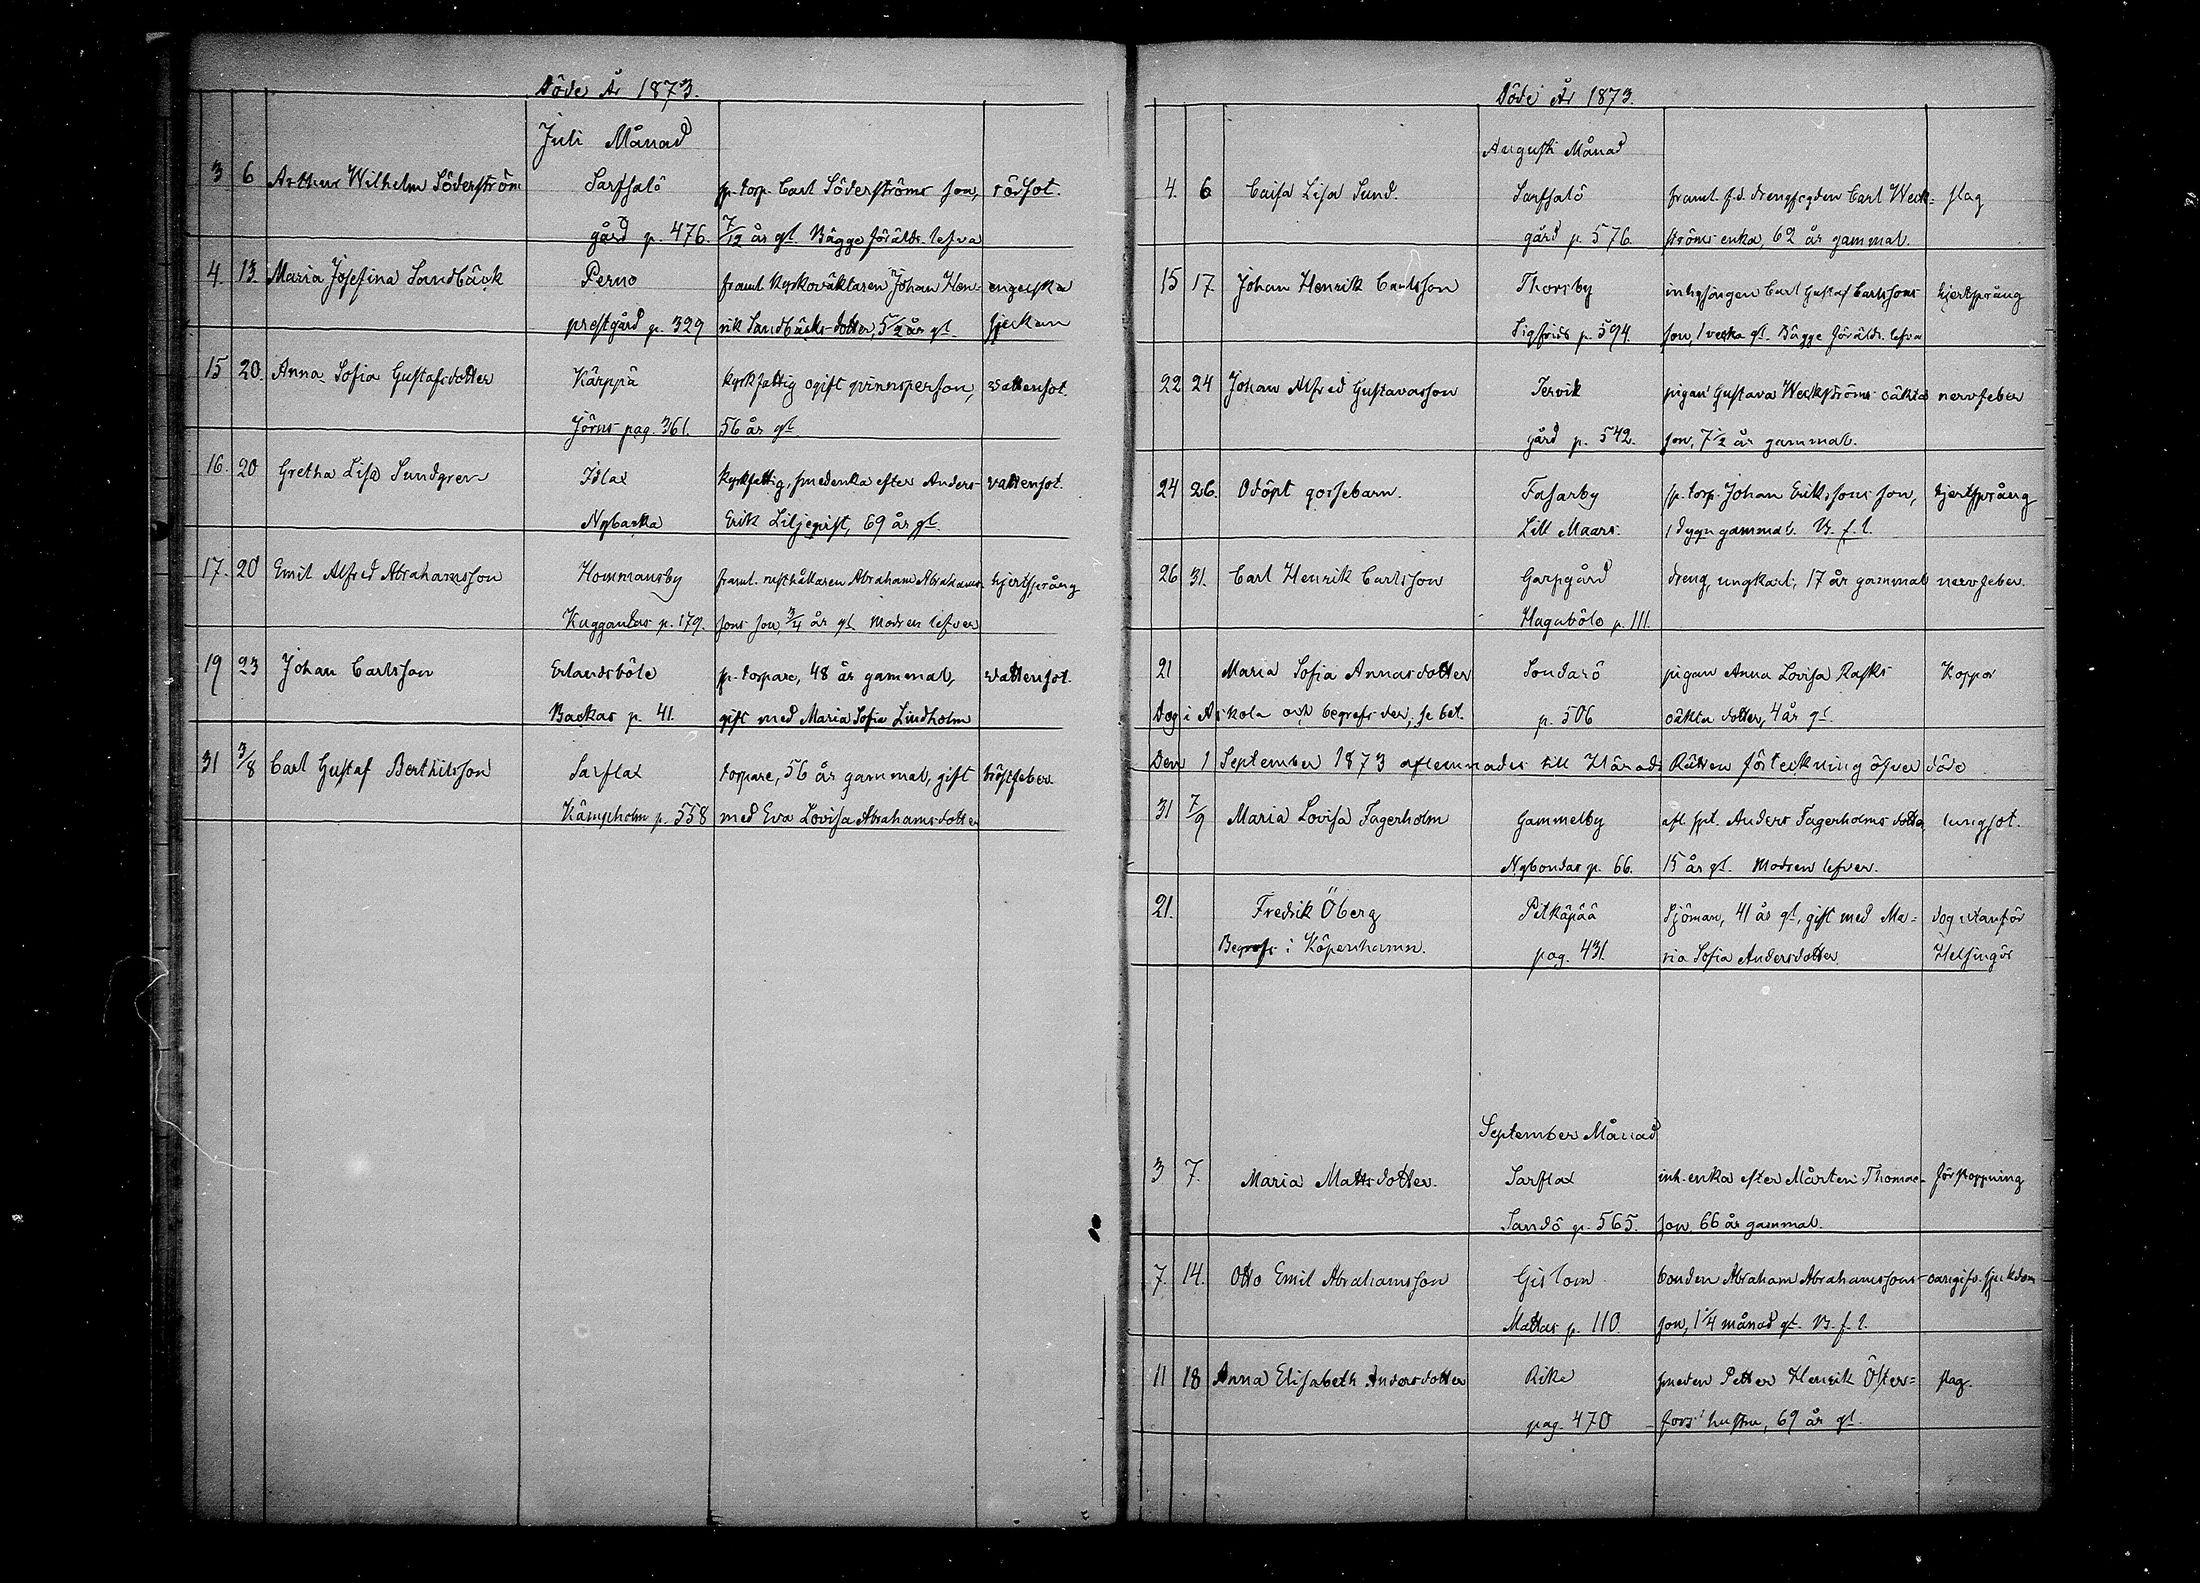 Döde År 1873.
Juli Månad
3 6 Arthur Wilhelm Söderström Sarfsalö sp. torp. Carl Söderströms son, rödsot.
gård p. 476. 7/12 år gl. Bägge föräldr. lefva
4. 13. Maria Josefina Sandbäck Perno framl. kyrkoväktaren Johan Hen- engelska
prestgård p. 329 rik Sandbäcks dotter, 5 1/2 år gl. sjukan
15 20. Anna Sofia Gustafsdotter Kärppä kyrkfattig ogift qvinnsperson, vattensot.
Jörns pag. 361. 56 år gl.
16. 20 Gretha Lisa Sundgren Islax kyrkfattig, smedenka efter Anders vattensot.
Nybacka Erik Liljeqvist, 69 år gl.
17. 20 Emil Alfred Abrahamsson Hommansby framl. rusthållaren Abraham Abrahams- hjertsprång
Kuggandas p. 179. sons son, 3/4 år gl. Modren lefver
19 23 Johan Carlsson Erlandsböle sp. torpare, 48 år gammal, vattensot.
Backas p. 41. gift med Maria Sofia Lindholm
31 3/8 Carl Gustaf Berthilsson Sarflax torpare, 56 år gammal, gift bröstfeber
Kämpholm p. 558 med Eva Lovisa Abrahamsdotter
Döde År 1873.
Augusti Månad
4. 6 Caisa Lisa Sund. Sarfsalö framl. f.d. drengfogden Carl Weck= slag
gård p. 576. ströms enka, 62 år gammal.
15 17 Johan Henrik Carlsson Thorsby inhysingen Carl Gustaf Carlssons hjertsprång
Sigfrids p. 594. son, 1 vecka gl. Bägge föräldr. lefva
22 24 Johan Alfred Gustavasson Tervik pigan Gustava Weckströms oäkta nervfeber
gård p. 542. son, 7 1/2 år gammal.
24 26. Odöpt gossebarn. Fasarby sp. torp. Johan Erikssons son, hjertsprång
Lill Maars. 1 dygn gammal. B. f. l.
26 31. Carl Henrik Carlsson Garpgård dreng, ungkarl, 17 år gammal nervfeber.
Hagaböle p. 111.
21 Maria Sofia Annasdotter Sondarö pigan Anna Lovisa Rasks Koppor
Dog i Askola och begrofs der, se bet. p. 506 oäkta dotter, 4 år gl.
Den 1 September 1873 aflemnades till Härads Rätten förteckning öfver döde
31 7/9 Maria Lovisa Fagerholm Gammelby afl. Anders Fagerholms dotter, lungsot.
Nybondas p. 66. 15 år gl. Modren lefver.
21. Fredrik Öberg Pitkäpää Sjöman, 41 år gl, gift med Ma= dog utanför
Begrofs i Köpenhamn. pag. 431. ria Sofia Andersdotter Helsingör
September Månad
3 7. Maria Mattsdotter. Sarflax inh. enka efter Mårten Thomas- förstoppning
Sandö p. 565. son, 66 år gammal.
7. 14. Otto Emil Abrahamsson Gislom bonden Abraham Abrahamssons oangifv. sjukdom
Mattas p. 110. son, 1 1/4 månad gl. B. f. l.
11 18 Anna Elisabeth Andersdotter Rike smeden Petter Henrik Öster= slag.
pag. 470 fors' hustru, 69 år gl.